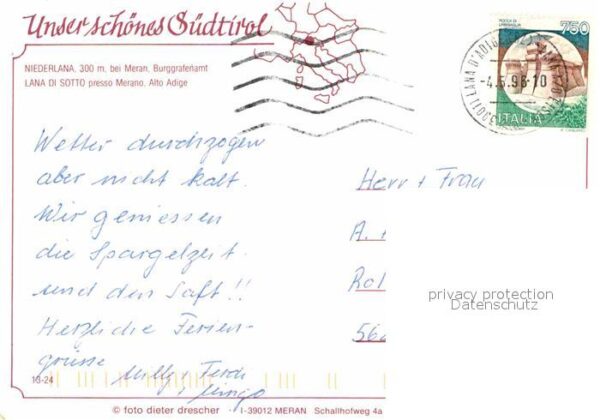 Unser schönes Südtirol
NIEDERLANA, 300 m, bei Meran, Burggrafenamt
LANA DI SOTTO presso Merano, Alto Adige
ROCCA DI URBISAGLIA
750
ITALIA
-4.5.96-10
Wetter durchzogen
aber nicht kalt.
Wir geniessen
die Spargelzeit
und den Saft!!
Herzliche Ferien-
grüsse
Milly + Ferdi
+ Mingo
Herr + Frau
A.
Rol
562
privacy protection
Datenschutz
13-24
© foto dieter drescher I-39012 MERAN Schallhofweg 4a